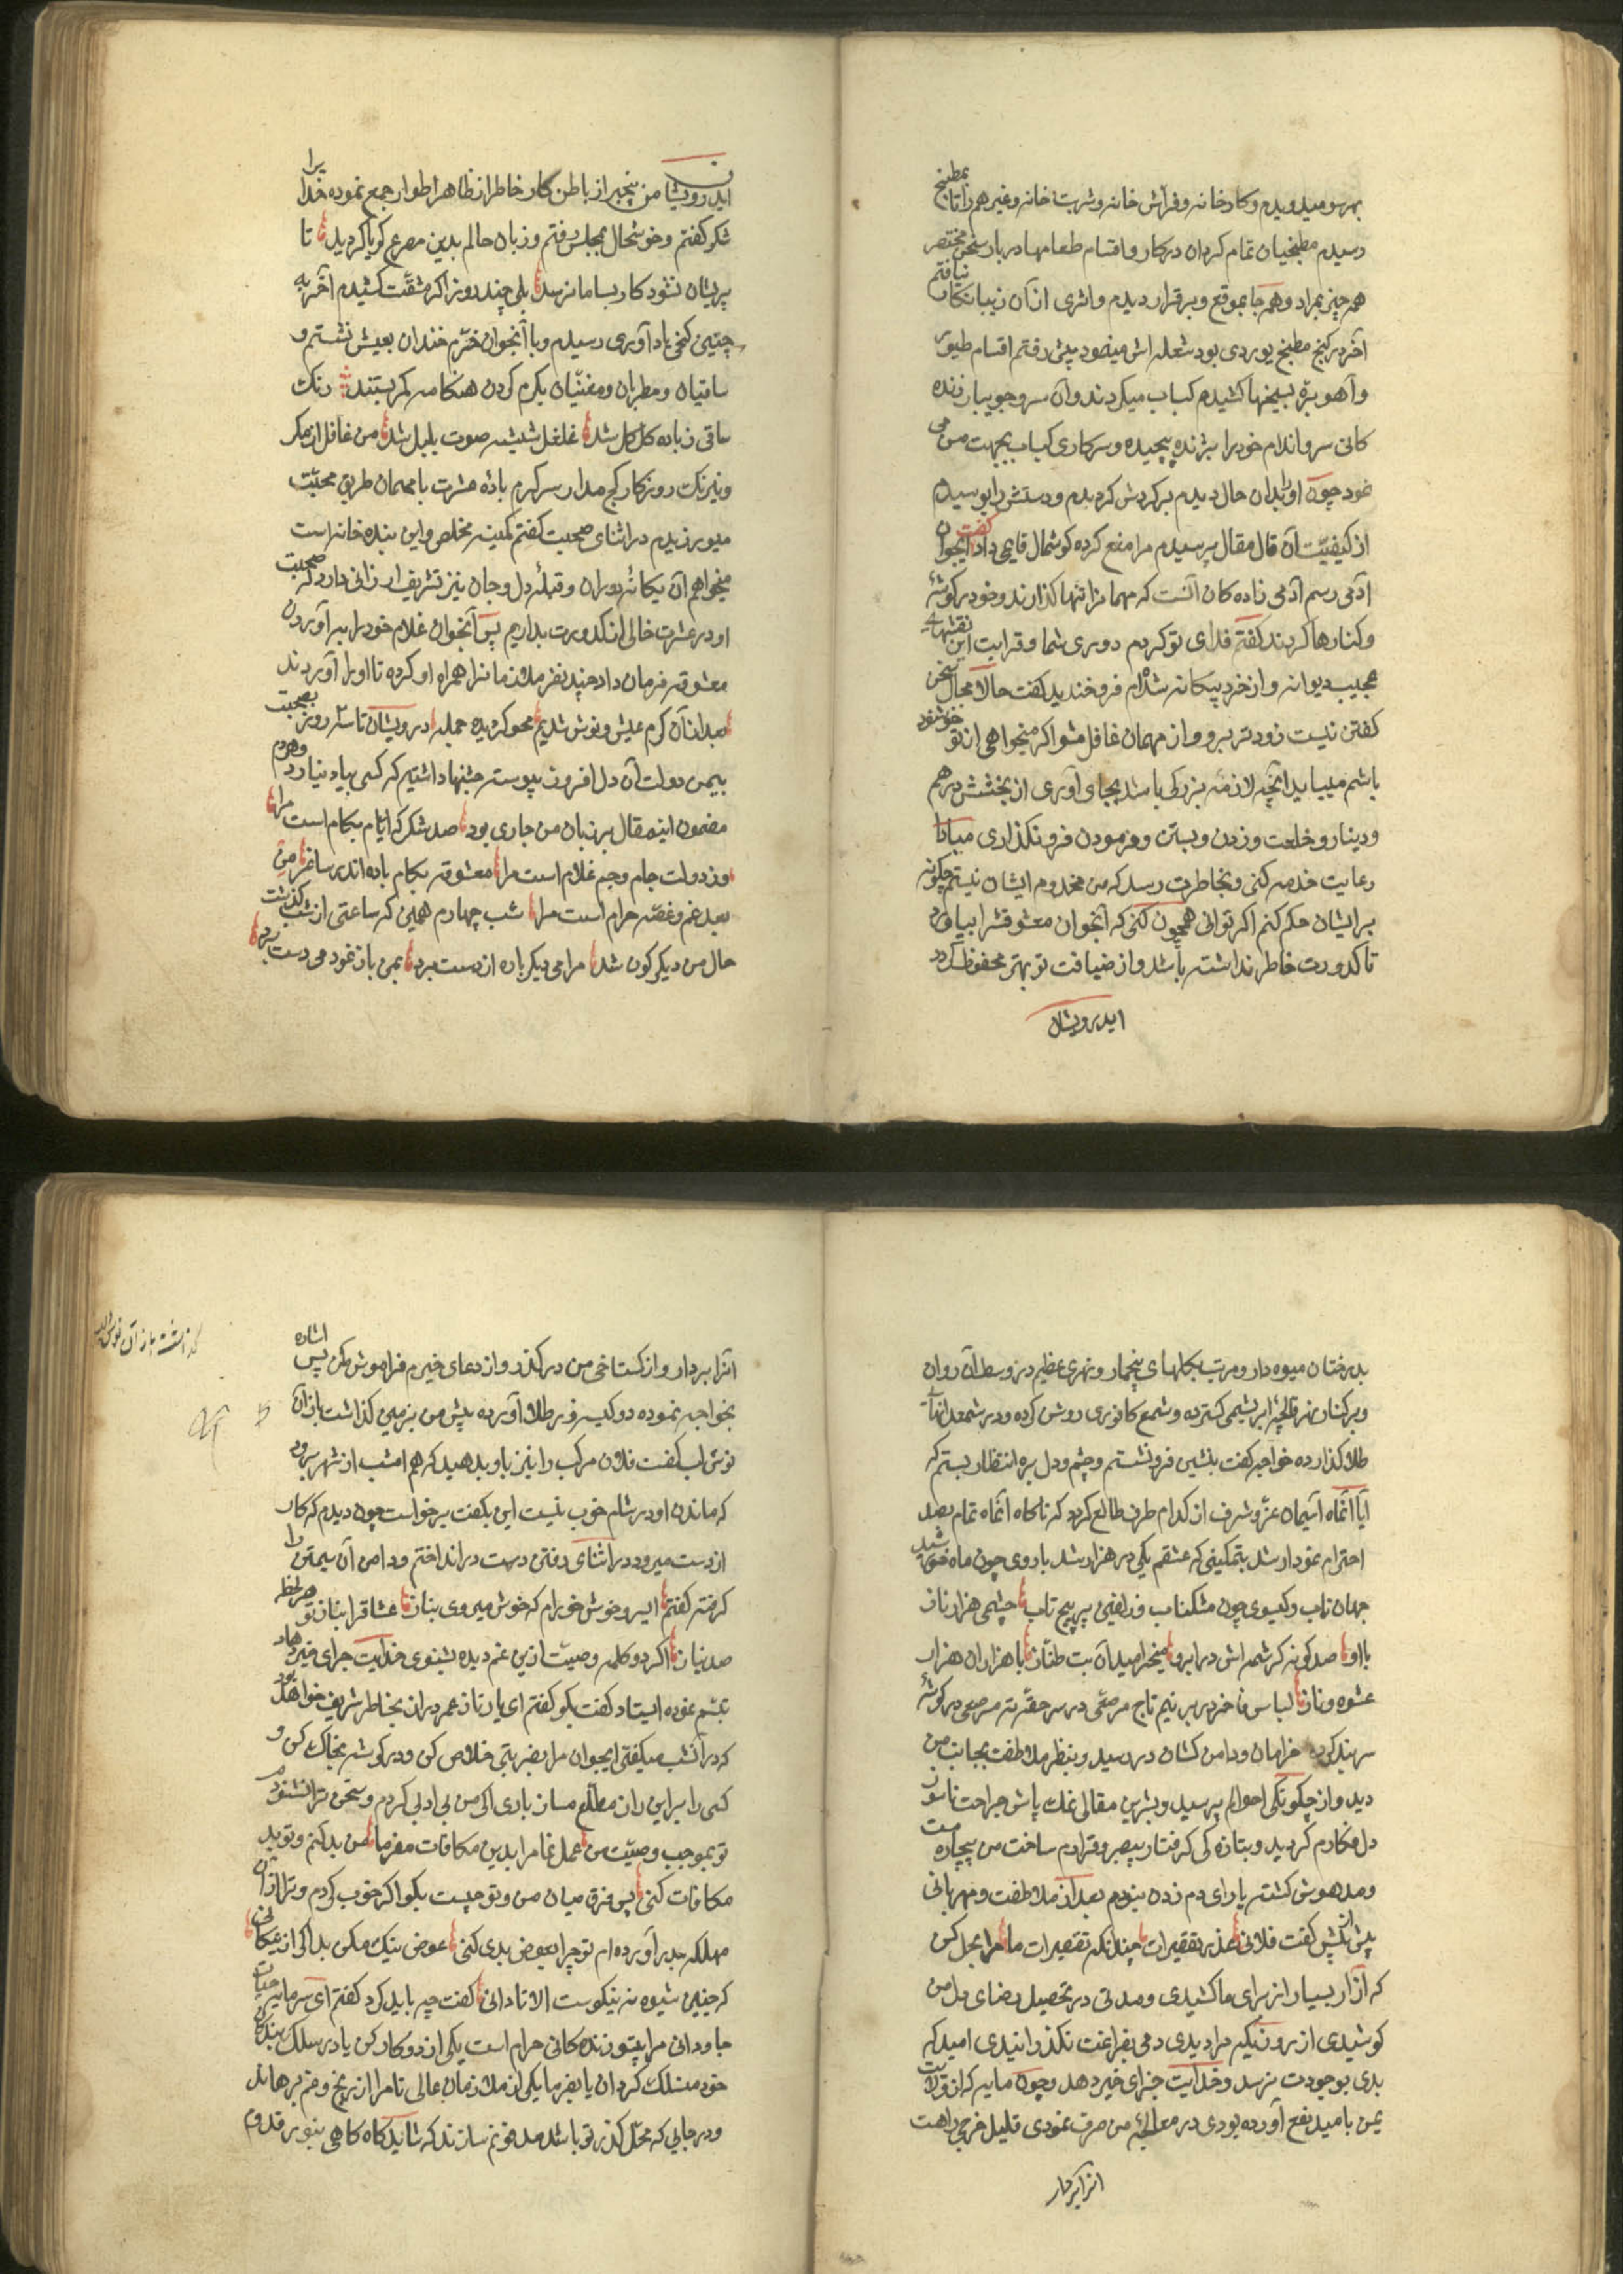 بهر سو میدویدم و کارخانه و فراش خانه و شربت خانه و غیرهم را تا بمطبخ
رسیدم مطبخیان تمام کردان در کار و اقسام طعامها در بار سخن مختصر
همه چیز بمراد و همه جا بموقع و برقرار دیدم و اثری از آن زیبا نکار نیافتم
آخر در کنج مطبخ یوردی بود شعله اش مینمود پیش رفتم اقسام طیور
و آهو بره بسیخها کشیدم کباب میکردند و آن سرو جویبار زنده
کانی سر و اندام خودرا بژنده پیچیده و سرکاری کباب بجهت من می
نمود چون او را بدان حال دیدم برکردش کردیدم و دستش را بوسیدم
از کیفیت آن قال مقال پرسیدم مرا منع کرده کوشمال قایمی داد کفت ایجوان
آدمی رسم آدمی زاده کان آنست که مهمانرا تنها کذارند و خود در کوشهٔ
و کنارها کردند کفتم فدای تو کردم دوری شما و قرابت این نقشهای
عجیب دیوانه و از خرد بیکانه شدم فرو خندید کفت حالا مجال سخن
کفتن نیست زودتر برو و از مهمان غافل مشو اکر میخواهی از تو خوشنود
باشم میباید آنچه لازمه بزرکی باشد بجای آوری از بخشش درهم
و دینار و خلعت و زدن و بستن و فرمودن فرو نکذاری مبادا
رعایت خدمه کنی و بخاطرت رسد که من مخدوم ایشان نیستم چکونه
بر ایشان حکم کنم اکر توانی همچون کنی که آنجوان معشوقشرا بیاورد
تا کدورت خاطر نداشته باشد و از ضیافت تو بهتر محفوظ کردد
ایدرویشان
ایدرویشان من بیخبر از باطن کار خاطر از ظاهر اطوار جمع نموده خدا یرا
شکر کفتم و خوشحال بمجلس رفتم و زبان حالم بدین مصرع کویا کردید تا
پریشان نشود کار بسامان نرسد بلی چند روز اکر مشقت کشیدم آخر به
چنین کنج باد آوری رسیدم و با آنجوان خرم خندان بعیش نشستم و
ساقیان و مطربان و مغنیان بکرم کردن هنکامه کمر بستند رنک
ساقی ز باده کل کل شد غلغل شیشه صوت بلبل شد من غافل از مکر
و نیرنک روزکار کج مدار سرکرم بادهٔ عشرت با مهمان طریق محبت
میورزیدم در اثنای صحبت کفتم کمینه مخلص و این بنده خانه است
میخواهم آن یکانهٔ دوران و قبلهٔ دل و جان نیز تشریف ارزانی دارد که صحبت
او در عشرت خالی از کدورت بداریم پس آنجوان غلام خودرا ببر آوردن
معشوقه فرمان داد چند نفر ملازمانرا همراه او کرده تا او را آوردند
بعد از آن کرم عیش و نوش شدیم محو کردیده جمله درویشان تا سه روز بصحبت
بیمن دولت آن دل افروز پیوسته جشنها داشتیم که کسی بیاد نیارد و هردم
مضمون اینمقال بر زبان من جاری بود صد شکر که ایام بکام است مرا
وز دولت جام و جم غلام است مرا معشوقه بکام باده اندر ساغر من
بعد غم و غصه حرام است مرا شب چهارم همین که ساعتی از شب کذشت
حال من دیکرکون شد مرا می دیکر باره از دست برد بمن باز نمود می دست برد
بدرختان میوه دار و مرتب بکلهای بیخار و نهری عظیم در وسط آن روان
و بر کنار نهر قالیچهٔ ابریشمی کسترده و شمع کافوری روشن کرده و در شمعدانهای
طلا کذارده خواجه کفت بنشین فرو نشستم و چشم و دل بره انتظار بستم که
آیا آنماه آسمان عز و شرف از کدام طرف طالع کردد که ناکاه آنماه تمام بصد
احترام نمودار شد بتمکینی که عشقم یکی در هزار شد با روی چون ماه خورشید
جهان تاب و کیسوی چون مشکناب و زلفین پر پیچ تاب چشمی هزار ناز
با او صد کونه کرشمه اش در ابرو میخرامید آن بت طناز با هزاران هزار
عشوه و ناز لباس فاخر در بر نیم تاج مرصعی در سر حقهٔ مرصعی در کوشهٔ
سربند کرده خرامان و دامن کشان در رسید و بنظر ملاطفت بجانب من
دید و از چکونکی احوالم پرسید و بشیرین مقالی نمک پاش جراحت ناسور
دل فکارم کردید و بتازه کی کرفتار بیصبر و قرارم ساخت من بیچاره مست
و مدهوش کشته یارای دم زدن نبودم بعد از ملاطفت و مهربانی
پیش از پیش کفت فلانی عذر تقصیرات چندانکه تقصیرات ما مرا بحل کن
که آزار بسیار از برای ما کشیدی و مدتی در تحصیل رضای دل من
کوشیدی از روزیکه مرا دیدی دمی بفراغت نکذرانیدی امید که
بدی بوجودت نرسد و خدایت جزای خیر دهد و چون مایه که از ولایت
یمن بامید نفع آورده بودی در معالجهٔ من صرف نمودی قلیل خرجی راهت
انرا بردار
انرا بردار و از کستاخی من درکذر و از دعای خیرم فراموش مکن پس اشاره
بخواجه نموده دو کیسه زر طلا آورده پیش من بزمین کذاشت باز آن
نوش لب کفت فلان مرکب را نیز باو بدهید که هم امشب از شهر برود
که ماندن او در شام خوب نیست این بکفت برخواست چون دیدم که کار
از دست میرود در اثنای رفتن دست در انداختم و دامن آن سیمتن را
کرفته کفتم ای سرو خوش خرام که خوش میروی بناز عشاقرا بناز تو هر لحظه
صد نیاز اکر دو کلمه وصیت از این غم دیده بشنوی خدایت جزای خیر دهاد
تبسم نموده ایستاد کفت بکو کفتم ای یار نازنین عمر دراز بخاطر شریف خواهد بود
که در آنشب میکفتی ایجوان مرا بضربتی خلاص کن و در کوشه بخاک کن و
کسی را بر این راز مطلع مساز باری اکر من بی ادبی کردم و سخن ترا نشنودم
تو بموجب وصیت من عمل نما مرا بدین مکافات مفرما من بد کنم و تو بد
مکافات کنی پس فرق میان من و تو چیست بکو اکر خوب کردم و ترا از آن
مهلکه بدر آورده ام تو چرا بعوض بدی کنی عوض نیک مکن بد اکر از نیکانی
که چنین شیوه نه نیکوست الا تا دانی کفت چه باید کرد کفتم ای سرمایه حیات
جاودانی مرا بیتو زنده کانی حرام است یکی از دو کار کن یا در سلک بندکان
خود منسلک کردان یا بفرما یکی از ملازمان عالی تا مرا از رنج و غم برهاند
و در جایی که محل کذر تو باشد مدفونم سازند که شاید کاه کاهی بنو بر قدوم
کذاشت باز آن نوش لب